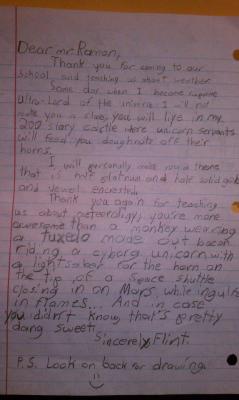 Dear mr. Ramon,
Thank you for coming to our
school and teaching us about weather.
Some day when I become supreme
Ultra-Lord of the universe I will not
make you a slave, you will live in my
200 story castle where unicorn servants
will feed you doughnuts off their
horns.
I will personally make you a throne
that is half platnum and half solid gold
and jewel encrested.
Thank you again for teaching
us about meteoroligy, you're more
awesome than a monkey wearing
a tuxedo made out bacon
riding a cyborg unicorn with
a lightsaber for the horn on
the tip of a space shuttle
closing in on Mars while ingulfed
in flames... And in case
you didn't know, that's pretty
dang sweet.
Sincerely, Flint.
P.S. Look on back for drawing.